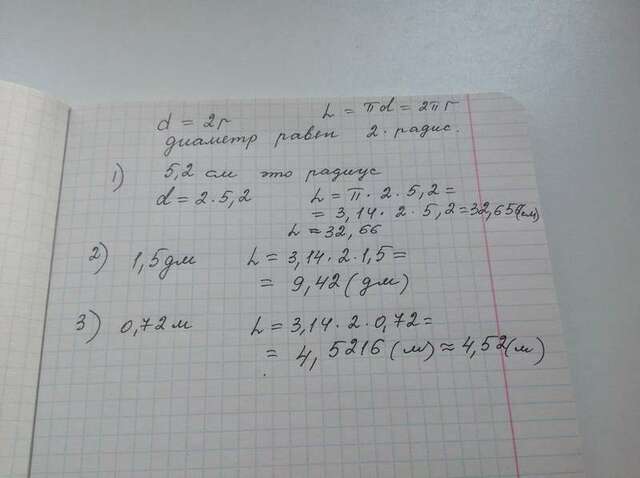 d = 2r L = πd = 2πr
диаметр равен 2. радис.
1) 5,2 см это радиус
d = 2 · 5,2 L = π · 2 · 5,2 =
= 3,14 · 2 · 5,2 = 32,656 (см)
L = 32,66
2) 1,5 дм L = 3,14 · 2 · 1,5 =
= 9,42 (дм)
3) 0,72 м L = 3,14 · 2 · 0,72 =
= 4,5216 (м) ≈ 4,52 (м)